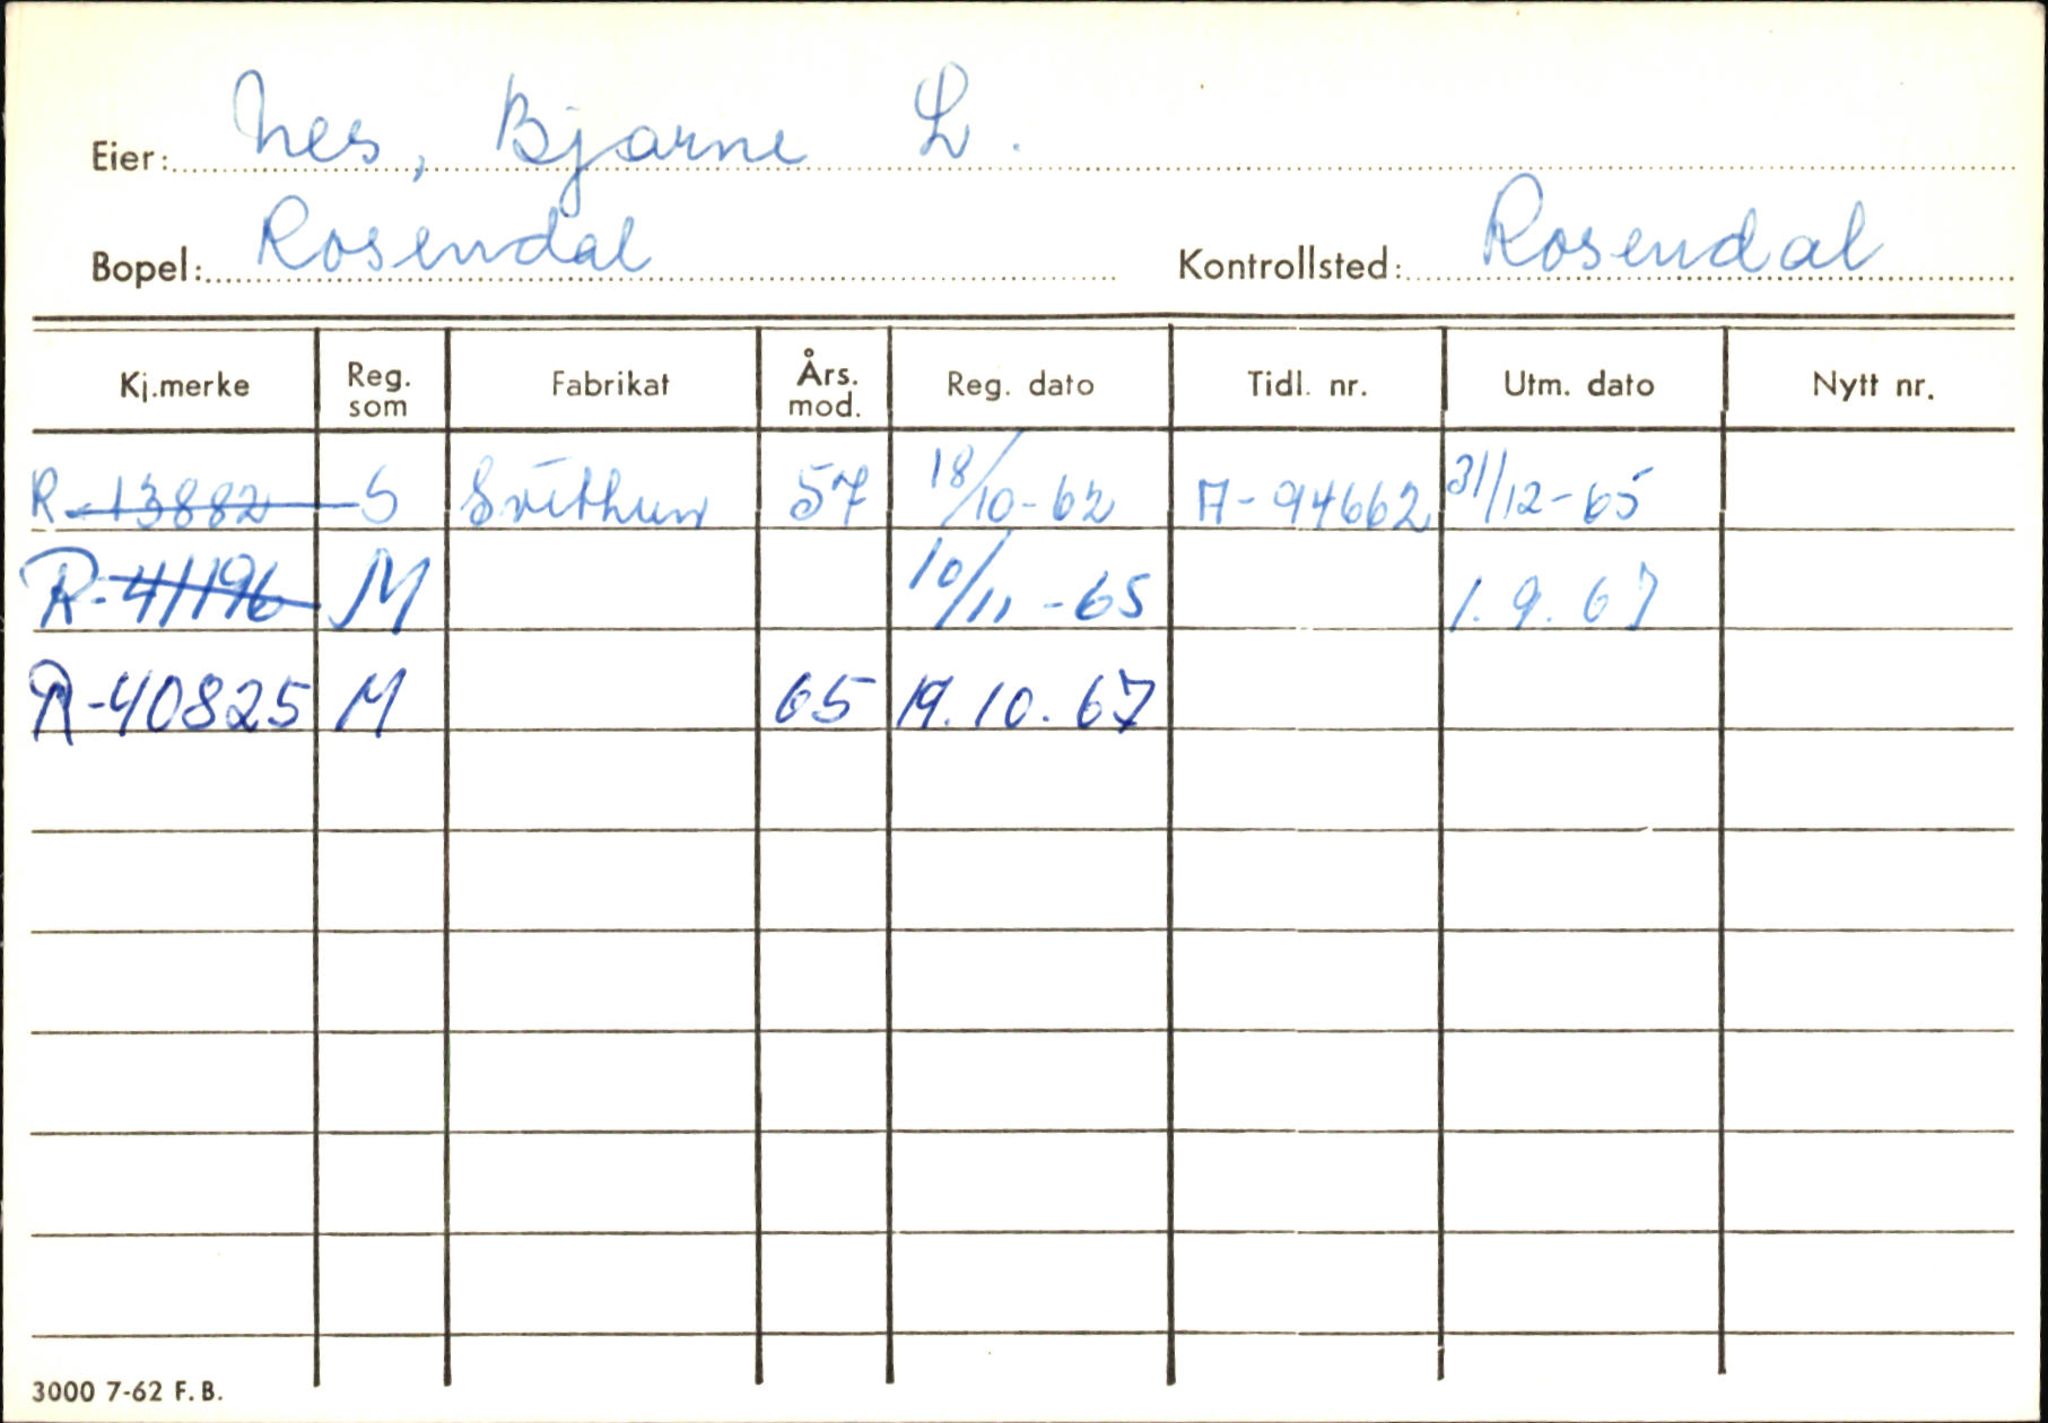 Eier: Nes, Bjarne L.
Bopel: Rosendal Kontrollsted: Rosendal
Kj.merke Reg. som Fabrikat Års. mod. Reg. dato Tidl. nr. Utm. dato Nytt nr.
R-13882 S Svithun 57 18/10-62 A-94662 31/12-65
R-41196 M 10/11-65 1.9.67
R-40825 M 65 19.10.67
3000 7-62 F.B.